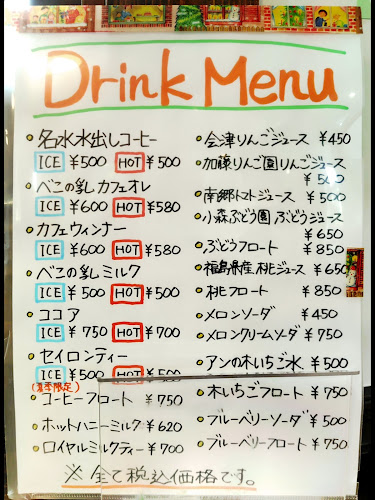 Drink Menu
名水水出しコーヒー
ICE ¥500 HOT ¥500
べこの乳 カフェオレ
ICE ¥600 HOT ¥580
カフェウィンナー
ICE ¥600 HOT ¥580
べこの乳 ミルク
ICE ¥500 HOT ¥500
ココア
ICE ¥750 HOT ¥700
セイロンティー
ICE ¥500 HOT ¥500
(夏季限定)
コーヒーフロート ¥750
ホットハニーミルク ¥620
ロイヤルミルクティー ¥700
会津りんごジュース ¥450
加藤りんご園りんごジュース
¥500
南郷トマトジュース ¥500
小森ぶどう園 ぶどうジュース
¥650
ぶどうフロート ¥850
福島県産桃ジュース ¥650
桃フロート ¥850
メロンソーダ ¥450
メロンクリームソーダ ¥750
アンの木いちご水 ¥500
木いちごフロート ¥750
ブルーベリーソーダ ¥500
ブルーベリーフロート ¥750
※全て税込価格です。